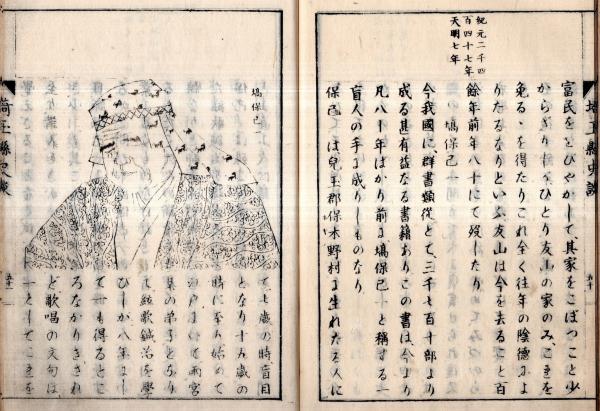 紀元二千四
百四十七年
天明七年
富民をおびやかして、其家をこぼつこと少
からざりしが、ひとり友山の家のみ、これを
免るゝを得たりこれ全く往年の陰德によ
りたるなりといふ友山は今を去ること百
餘年前年八十にて歿したり
塙保己一
今我國に群書類從とて、三千七百十部より
成る甚有益なる書籍ありこの書は今より
凡八十年ばかり前に塙保己一と稱する一
盲人の手に成りしものなり
保己一は兒玉郡保木野村に生れたる人に
埼玉縣史談
五十
塙保己一
て、七歲の時盲目
となり十五歲の
時に至り始めて
江戶にいで雨富
某の弟子となり
て絃歌鍼治を學
ひしが八年にし
て一も得るとこ
ろなかりきされ
ど歌唱の文句は
一としてこれを
埼玉縣史談